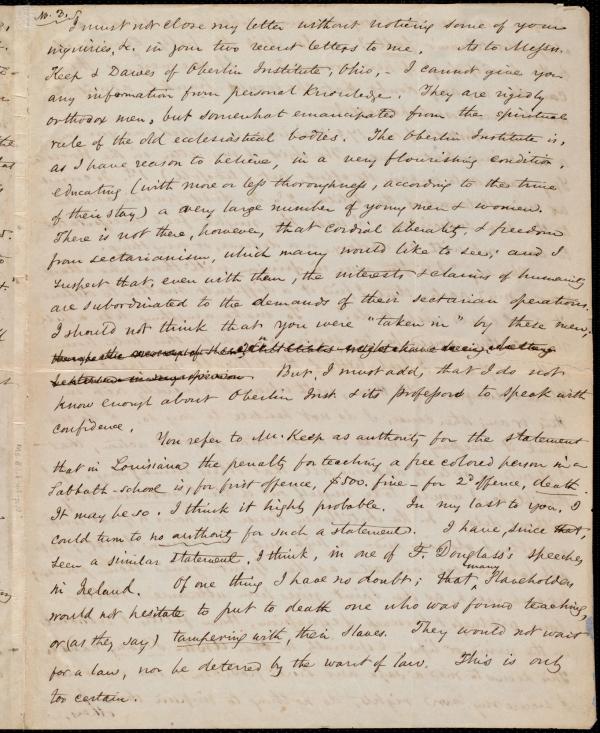 No. 3.
I must not close my letter without noticing some of your
inquiries, &c. in your two recent letters to me. As to Messrs.
Keep & Dawes of Oberlin Institute, Ohio, - I cannot give you
any information from personal knowledge. They are rigidly
orthodox men, but somewhat emancipated from the spiritual
rule of the old ecclesiastical bodies. The Oberlin Institute is,
as I have reason to believe, in a very flourishing condition,
educating (with more or less thoroughness, according to the time
of their stay) a very large number of young men & women.
There is not there, however, that cordial liberality, & freedom
from sectarianism, which many would like to see; and I
suspect that, even with them, the interests & claims of humanity
are subordinated to the demands of their sectarian operations.
I should not think that you were "taken in" by these men;
But, I must add, that I do not
know enough about Oberlin Inst. & its professors to speak with
confidence.
You refer to Mr. Keep as authority for the statement
that in Louisiana the penalty for teaching a free colored person in a
Sabbath-school is, for first offence, $500. fine - for 2d offence, death.
It may be so. I think it highly probable. In my last to you, I
could turn to no authority for such a statement. I have, since that,
seen a similar statement, I think, in one of F. Douglass's speeches
in Ireland. Of one thing I have no doubt; that many Slaveholders
would not hesitate to put to death one who was found teaching,
or (as they say) tampering with, their slaves. They would not wait
for a law, nor be deterred by the want of law. This is only
too certain.